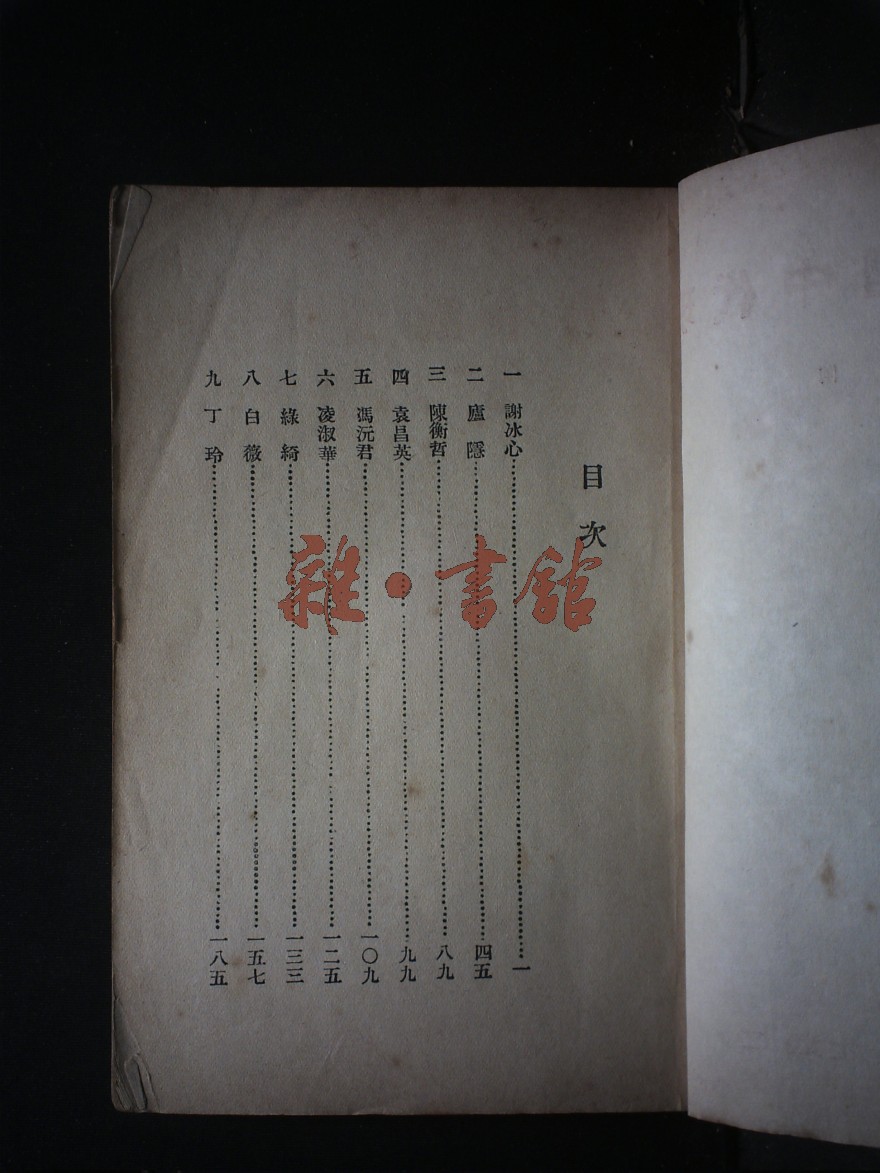 目次
一 謝冰心……一
二 廬隱……四五
三 陳衡哲……八九
四 袁昌英……九九
五 馮沅君……一〇九
六 凌淑華……一二五
七 綠綺……一三三
八 白薇……一五七
九 丁玲……一八五
雜·書館